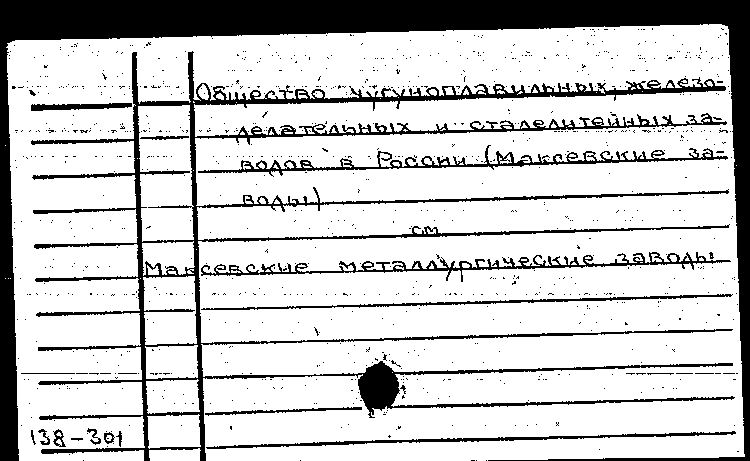 Общество чугуноплавильных, железо-
делательных и сталелитейных за-
водов в России (Максевские за-
воды)
см
Максевские металлургические заводы
138-301